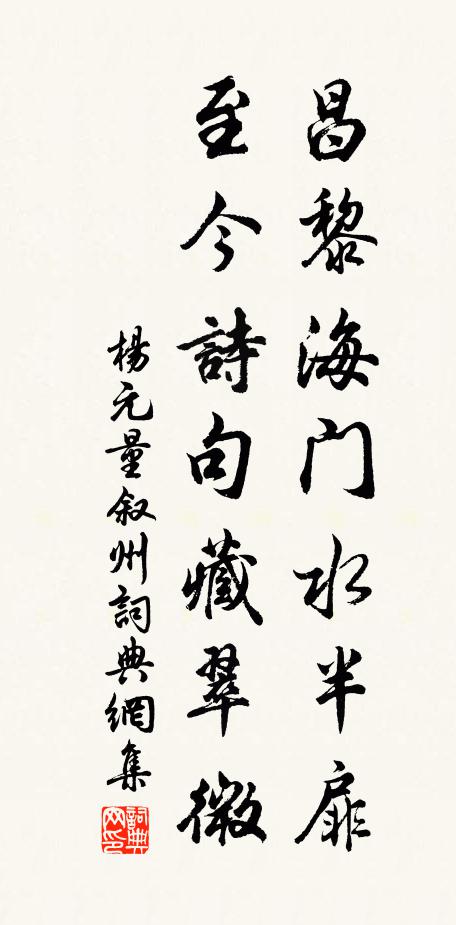 昌黎海门水半扉
至今詩句藏翠微
楊元量叙州詞典網集
詞典网印